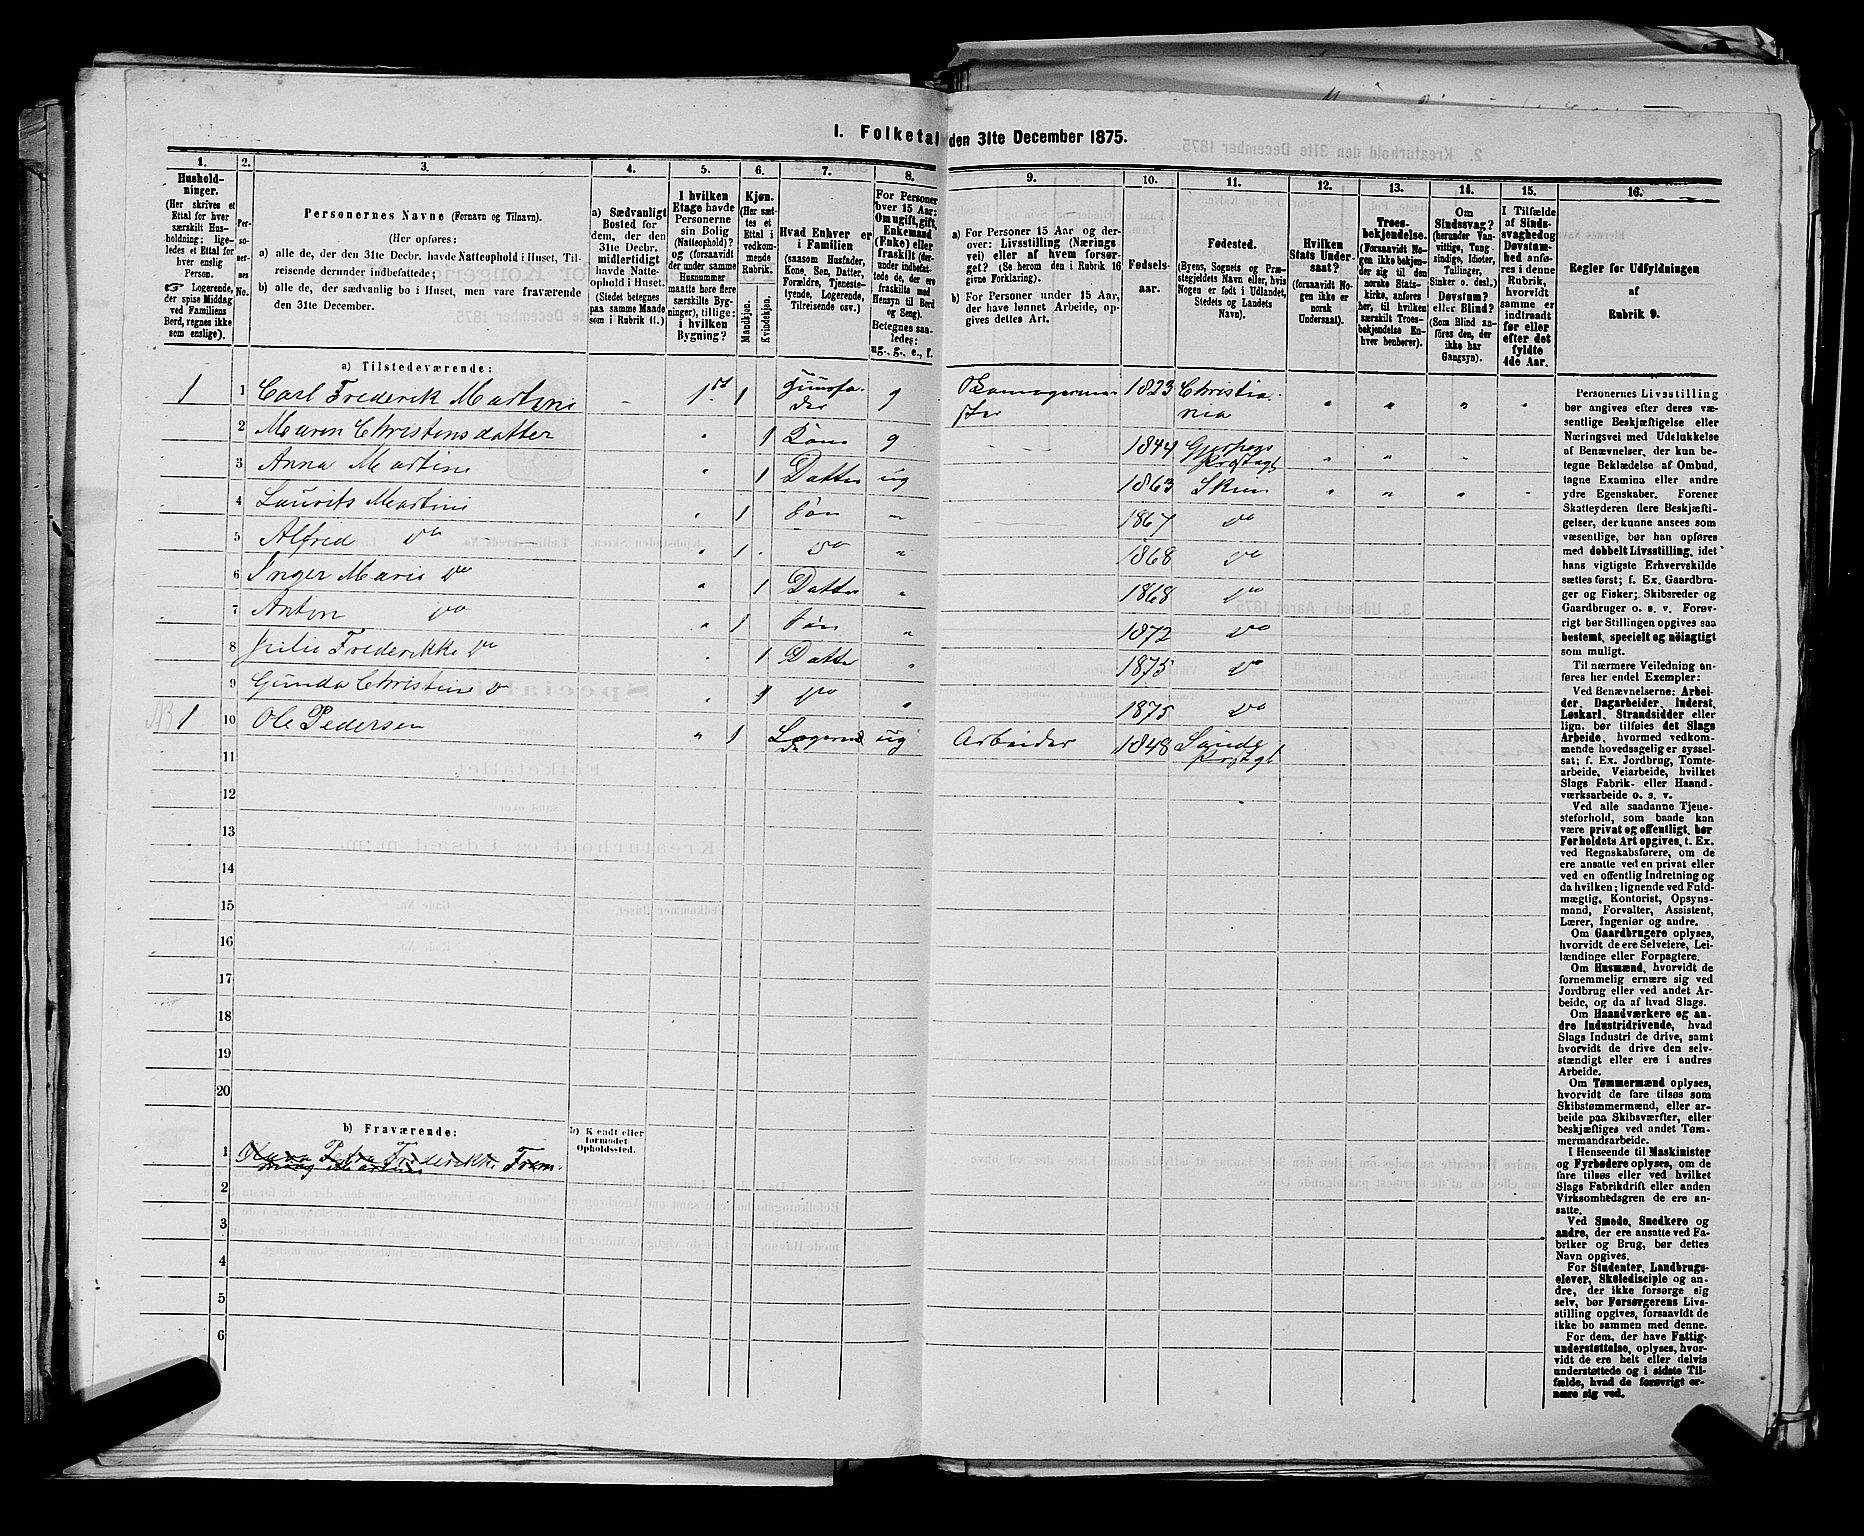 I. Folketal den 31te December 1875.
1. 2. 3. 4. 5. 6. 7. 8. 9. 10. 11. 12. 13. 14. 15. 16.
Hushold-
ninger.
(Her skrives et
Ettal for hver
særskilt Hus-
holdning; lige-
ledes et Ettal for
hver enslig
Person.
☞ Logerende,
der spise Middag
ved Familiens
Bord, regnes ikke
som enslige).
Per-
so-
ner-
nes
No.
Personernes Navne (Fornavn og Tilnavn).
(Her opføres:
a) alle de, der den 31te Decbr. havde Natteophold i Huset, Til-
reisende derunder indbefattede;
b) alle de, der sædvanlig bo i Huset, men vare fraværende
den 31te December.
a) Sædvanligt
Bosted for
dem, der den
31te Decbr.
midlertidigt
havde Natte-
ophold i Huset.
(Stedet betegnes
paa samme Maade
som i Rubrik 11.)
I hvilken
Etage havde
Personerne
sin Bolig
(Natteophold)?
og (forsaavidt
der under samme
Husnummer
maatte høre flere
særskilte Byg-
ninger), tillige:
i hvilken
Bygning?
Kjøn.
(Her sæt-
tes et
Ettal i
vedkom-
mende
Rubrik.)
Mandkjøn.
Kvindekjøn.
Hvad Enhver er
i Familien
(saasom Husfader,
Kone, Søn, Datter,
Forældre, Tjeneste-
tyende, Logerende,
Tilreisende osv.)
For Personer
over 15 Aar:
Om ugift, gift,
Enkemand
(Enke) eller
fraskilt
(der-
under indbefat-
tede de, der ere
fraskilte med
Hensyn til Bord
og Seng).
Betegnes saa-
ledes:
ug., g., e., f.
a) For Personer 15 Aar og der-
over: Livsstilling (Nærings-
vei) eller af hvem forsør-
get? (Se herom den i Rubrik 16
givne Forklaring).
b) For Personer under 15 Aar,
der have lønnet Arbeide, op-
gives dettes Art.
Fødsels-
aar.
Fødested.
(Byens, Sognets og Præ-
stegjeldets Navn eller, hvis
Nogen er født i Udlandet,
Stedets og Landets
Navn).
Hvilken
Stats Under-
saat?
(forsaavidt No-
gen ikke er
norsk
Undersaat).
Troes-
bekjendelse.
(Forsaavidt No-
gen ikke bekjen-
der sig til den
norske Stats-
kirke, anføres
her, til hvilken
særskilt Troes-
bekjendelse En-
hver henhører).
Om
Sindssvag?
(herunder Van-
vittige, Tung-
sindige, Idioter,
Tullinger,
Sinker o. desl.)
Døvstum?
eller Blind?
(Som Blind an-
føres den, der
ikke har
Gangsyn).
I Tilfælde
af Sinds-
svaghed og
Døvstum-
hed anfø-
res i denne
Rubrik,
hvorvidt
samme er
indtraadt
før eller
efter det
fyldte
4de Aar.
Regler for Udfyldningen
af
Rubrik 9.
a) Tilstedeværende:
1 1 Carl Frederik Martini 1st 1 Huusfa-
der g Skomagerme-
ster 1823 Christia-
nia
2 Maren Christensdatter 1 Kone g 1844 Gjerpens
Præstegl
3 Anna Martini 1 Datter ug 1863 Skien
4 Laurits Martini 1 Søn 1867 do
5 Alfred do 1 do 1868 do
6 Inger Marie do 1 Datter 1868 do
7 Anton do 1 Søn 1872 do
8 Julie Frederikke do 1 Datter 1875 do
9 Gunda Christine do 1 do 1875 do
1 10 Ole Pedersen 1 Logerende ug Arbeider 1848 Saude
Præstegl
11
12
13
14
15
16
17
18
19
20
b) Fraværende:
b) Kendt eller
formodet
Opholdssted.
1 Petra Frederikke
Martini
2
3
4
5
6
Personernes Livsstilling
bør angives efter deres væ-
sentlige Beskjæftigelse eller
Næringsvei med Udelukkelse
af Benævnelser, der kun be-
tegne Beklædelse af Ombud,
tagne Examina eller andre
ydre Egenskaber. Forener
Skatteyderen flere Beskjæfti-
gelser, der kunne ansees som
væsentlige, bør han opføres
med dobbelt Livsstilling, idet
hans vigtigste Erhvervskilde
sættes først; f. Ex. Gaardbru-
ger og Fisker; Skibsreder og
Gaardbruger o. s. v. Forøv-
rigt bør Stillingen opgives saa
bestemt, specielt og nöiagtigt
som muligt.
Til nærmere Veiledning an-
føres her endel Exempler:
Ved Benævnelserne: Arbei-
der, Dagarbeider, Inderst,
Løskarl, Strandsidder eller
lign. bør tilføies det Slags
Arbeide, hvormed vedkom-
mende hovedsagelig er syssel-
sat; f. Ex. Jordbrug, Tomte-
arbeide, Veiarbeide, hvilket
Slags Fabrik- eller Haand-
værksarbeide o. s. v.
Ved alle saadanne Tjene-
steforhold, som baade kan
være privat og offentligt, bør
Forholdets Art opgives, t. Ex.
ved Regnskabsførere, om de
ere ansatte ved en privat eller
ved en offentlig Indretning og
da hvilken; lignende ved Fuld-
mægtig, Kontorist, Opsyns-
mand, Forvalter, Assistent,
Lærer, Ingeniør og andre.
Om Gaardbrugere oplyses,
hvorvidt de ere Selveiere, Lei-
lændinge eller Forpagtere.
Om Husmænd, hvorvidt de
fornemmelig ernære sig ved
Jordbrug eller ved andet Ar-
beide, og da af hvad Slags.
Om Haandværkere og an-
dre Industridrivende, hvad
Slags Industri de drive, samt
hvorvidt de drive den selv-
stændigt eller ere i andres
Arbeide.
Om Tømmermænd oplyses,
hvorvidt de fare tilsøs som
Skibstømmermænd, eller ar-
beide paa Skibsværfter, eller
beskjæftiges ved andet Tøm-
mermandsarbeide.
I Henseende til Maskinister
og Fyrbødere oplyses, om de
fare tilsøs eller ved hvilket
Slags Fabrikdrift eller anden
Virksomhedsgren de ere an-
satte.
Ved Smede, Snedkere og
andre, der ere ansatte ved Fa-
briker og Brug, bør dettes
Navn opgives.
For Studenter, Landbrugs-
elever, Skoledisciple og an-
dre, der ikke forsørge sig
selv, bør Forsørgerens Livs-
stilling opgives, forsaavidt de
ikke bo sammen med denne.
For dem, der have Fattig-
understøttelse, oplyses, hvor-
vidt de ere helt eller delvis
understøttede og i sidste Til-
fælde, hvad de forøvrigt er-
nære sig ved.